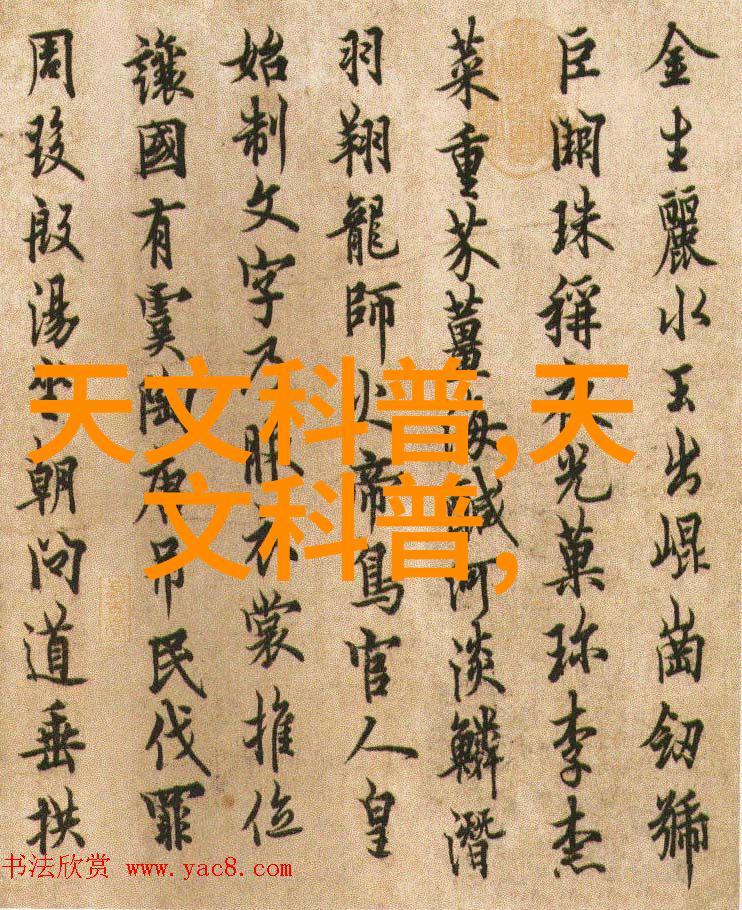 金生麗水玉出崐崗劒號
巨闕珠稱夜光菓珎李柰
菜重芥薑海鹹河淡鱗潛
羽翔龍師火帝鳥官人皇
始制文字乃服衣裳推位
讓國有虞陶唐吊民伐罪
周發殷湯坐朝問道垂拱
天文科普,天
文科普,
书法欣赏 www.yac8.com